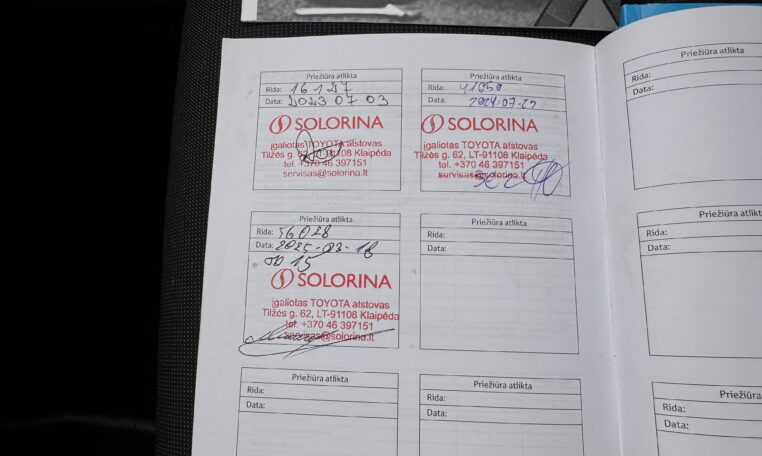 Priežiūra atlikta
Rida: 16127
Data: 2023 07 03
SOLORINA
įgaliotas TOYOTA atstovas
Tilžės g. 62, LT-91108 Klaipėda
tel. +370 46 397151
servisas@solorina.lt
Priežiūra atlikta
Rida: 41950
Data: 2024-07-22
SOLORINA
įgaliotas TOYOTA atstovas
Tilžės g. 62, LT-91108 Klaipėda
tel. +370 46 397151
servisas@solorina.lt
Priežiūra atlikta
Rida: 56028
Data: 2025-03-18
SOLORINA
įgaliotas TOYOTA atstovas
Tilžės g. 62, LT-91108 Klaipėda
tel. +370 46 397151
servisas@solorina.lt
Priežiūra atlikta
Rida:
Data:
Priežiūra atlikta
Rida:
Data:
Priežiūra atlikta
Rida:
Data:
Priežiūra atlikta
Rida:
Data:
Priežiūra atlikta
Rida:
Data:
Priežiūra
Rida:
Data: